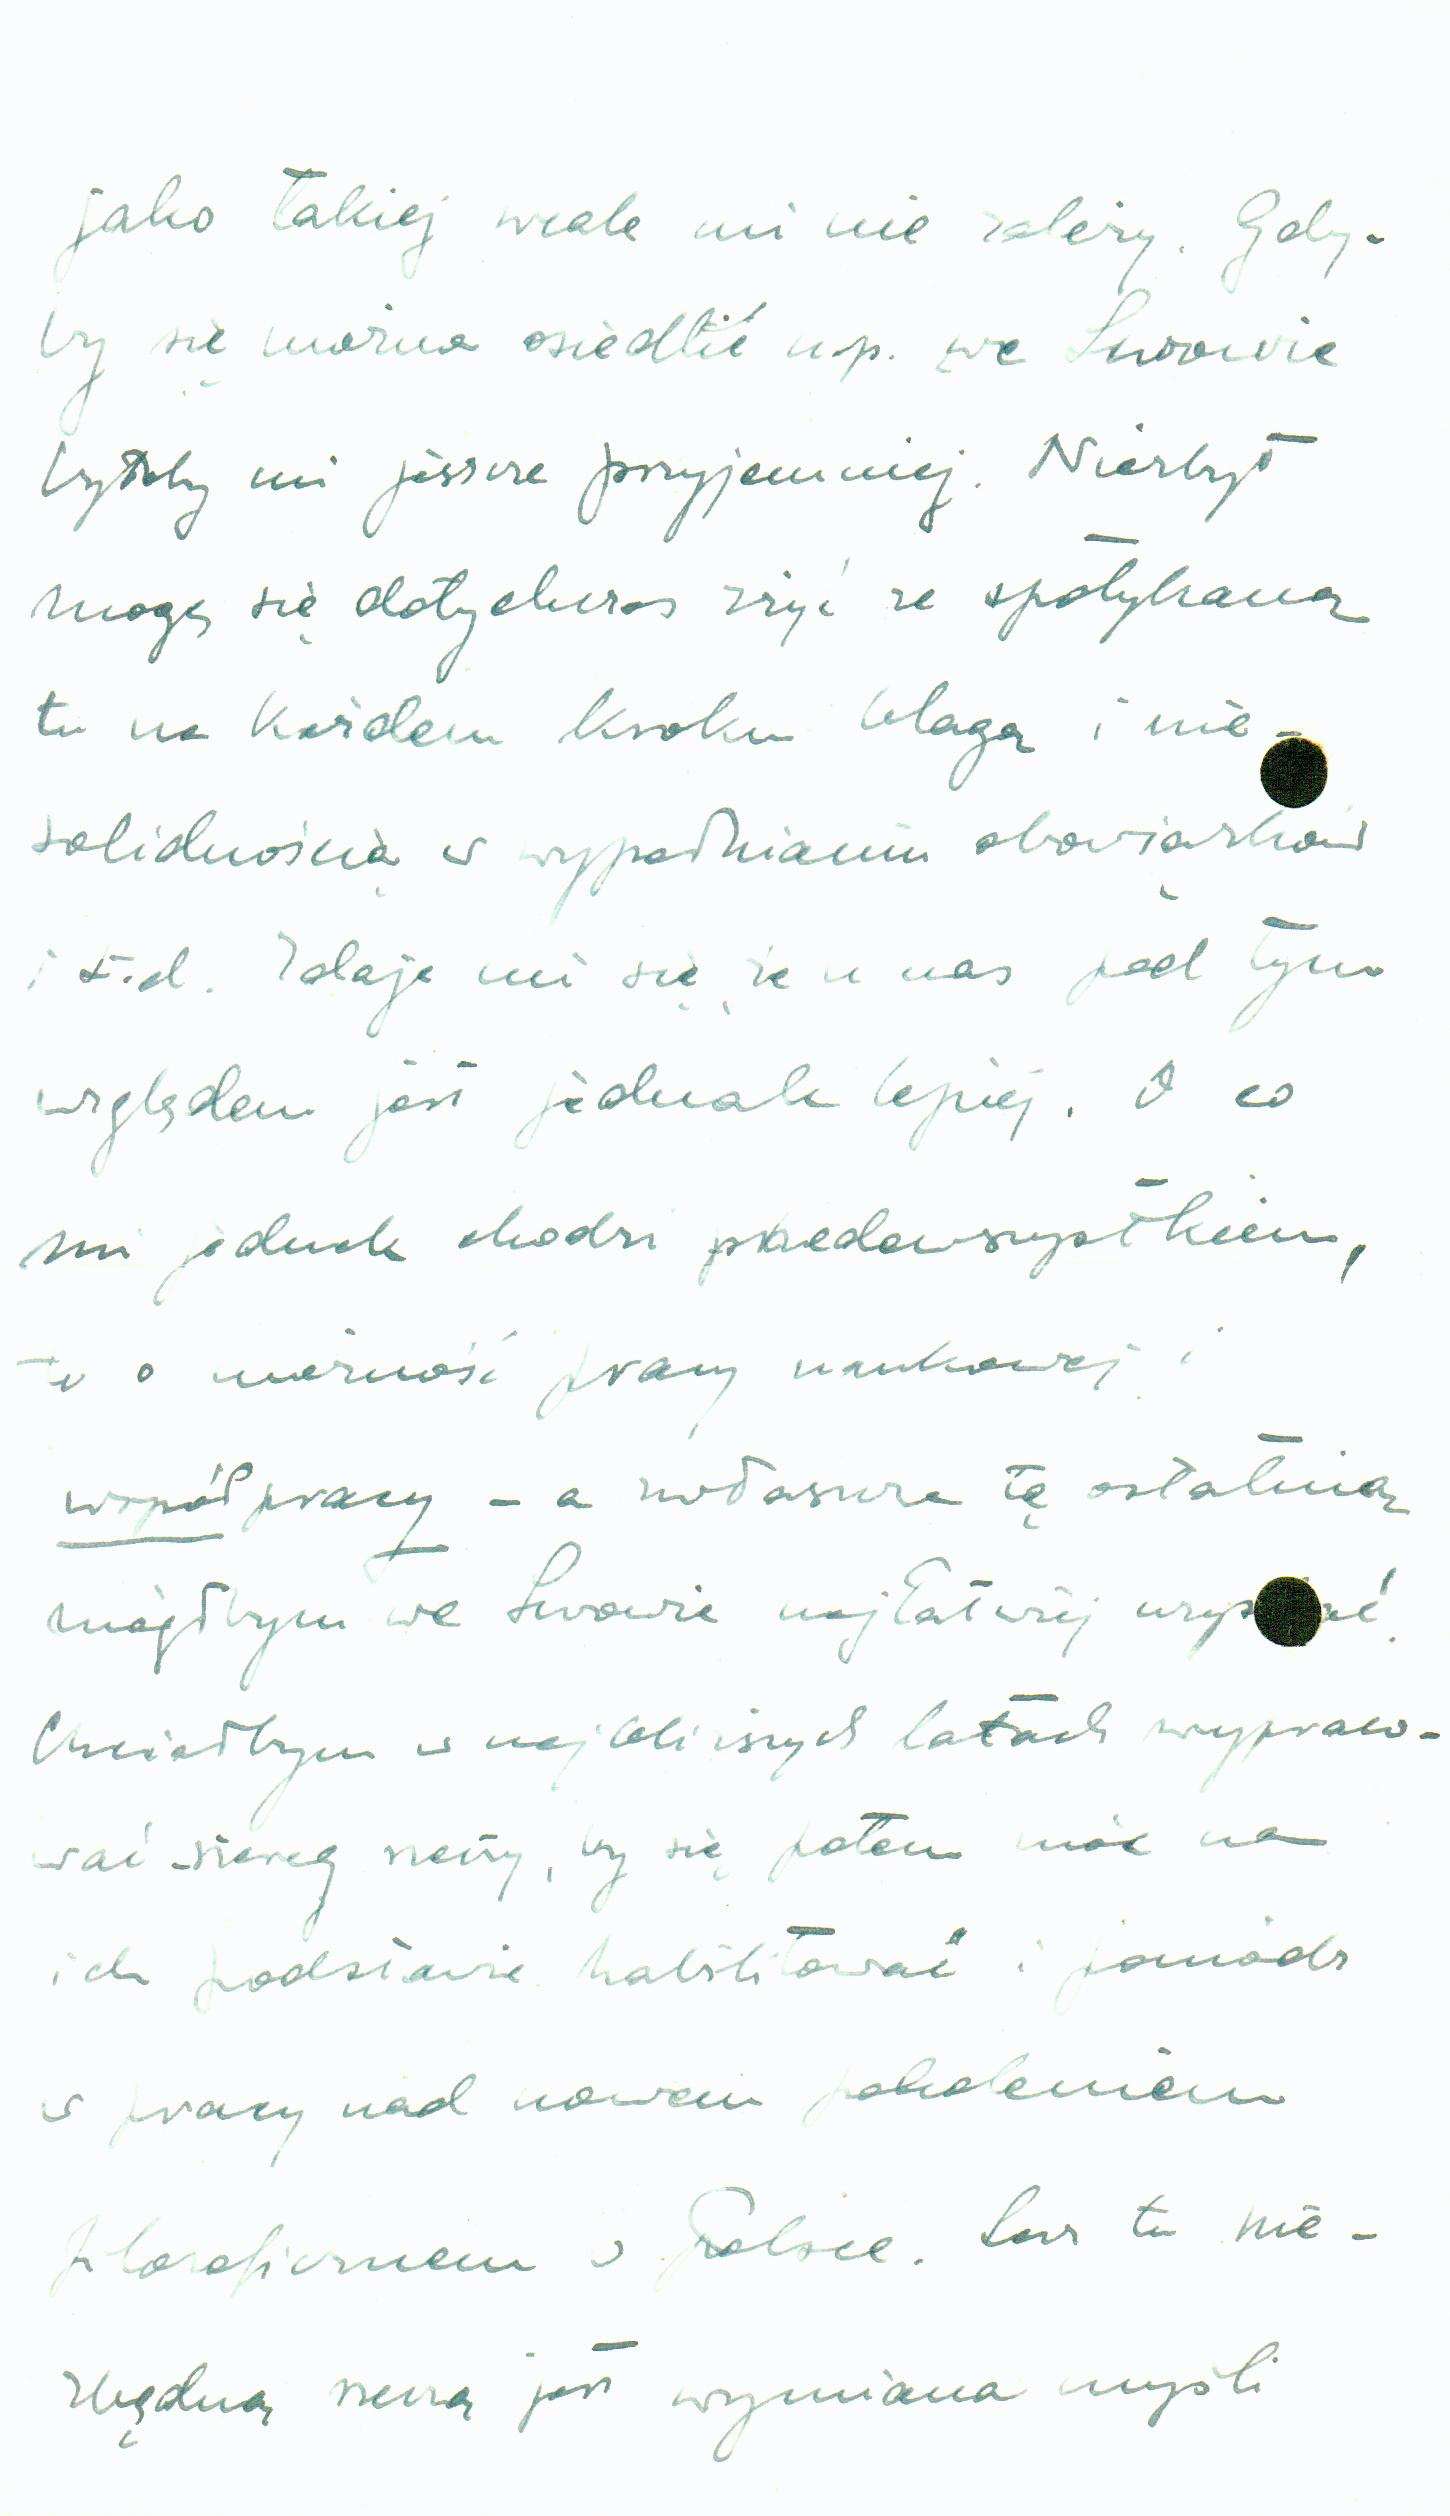 jako takiej wcale mi nie zależy. Gdy-
by się można osiedlić n.p. we Lwowie
byłoby mi jeszcze przyjemniej. Niezbyt
mogę się dotychczas zżyć ze spotykaną
tu na każdem kroku blagą i nie-
solidnością w wypełnianiu obowiązków
i t.d. Zdaje mi się, że u nas pod tym
względem jest jednak lepiej. O co
mi jednak chodzi przedewszystkiem,
to o możność pracy naukowej i
współpracy – a zwłaszcza tę ostatnią
mógłbym we Lwowie najłatwiej uzyskać.
Chciałbym w najbliższych latach wypraco-
wać szereg rzeczy, by się potem móc na
ich podstawie habilitować i pomódz
w pracy nad nowem pokoleniem
filozoficznem w Polsce. Lecz tu nie-
zbędną rzeczą jest wymiana myśli